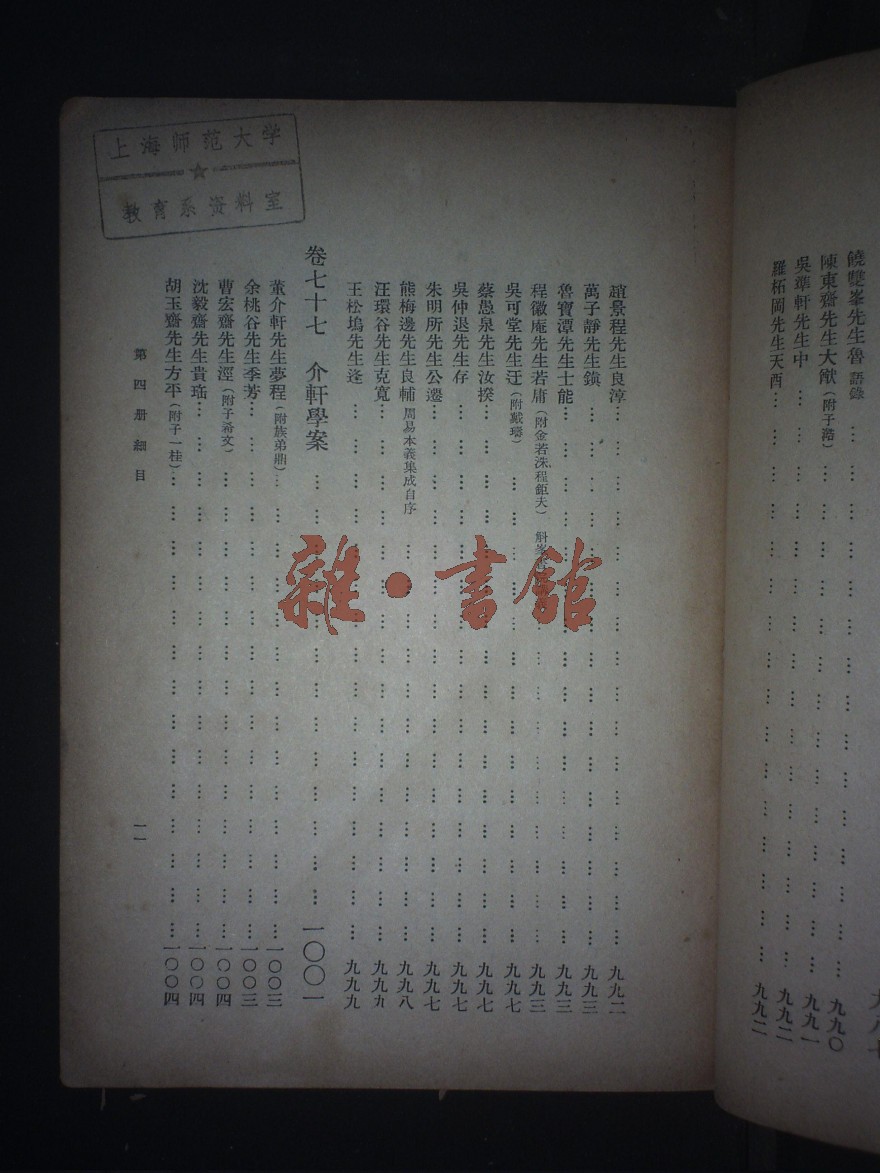 饒雙峯先生魯 語錄
陳東齋先生大猷(附子澔)……九九〇
吳準軒先生中……九九一
羅柘岡先生天酉……九九二
九九二
趙景程先生良淳……九九二
萬子靜先生鎮……九九三
魯寶潭先生士能……九九三
程徽庵先生若庸(附金若洙程鉅夫) 斛峯書……九九三
吳可堂先生迂(附戴璿)……九九七
蔡愚泉先生汝揆……九九七
吳仲退先生存……九九七
朱明所先生公遷……九九七
熊梅邊先生良輔 周易本義集成自序……九九八
汪環谷先生克寬……九九九
王松塢先生逢……九九九
卷七十七 介軒學案……一〇〇一
董介軒先生夢程(附族弟鼎)……一〇〇三
余桃谷先生季芳……一〇〇三
曹宏齋先生涇(附子希文)……一〇〇四
沈毅齋先生貴瑤……一〇〇四
胡玉齋先生方平(附子一桂)……一〇〇四
第四册細目
一一
上海师范大学
教育系资料室
雜·書館